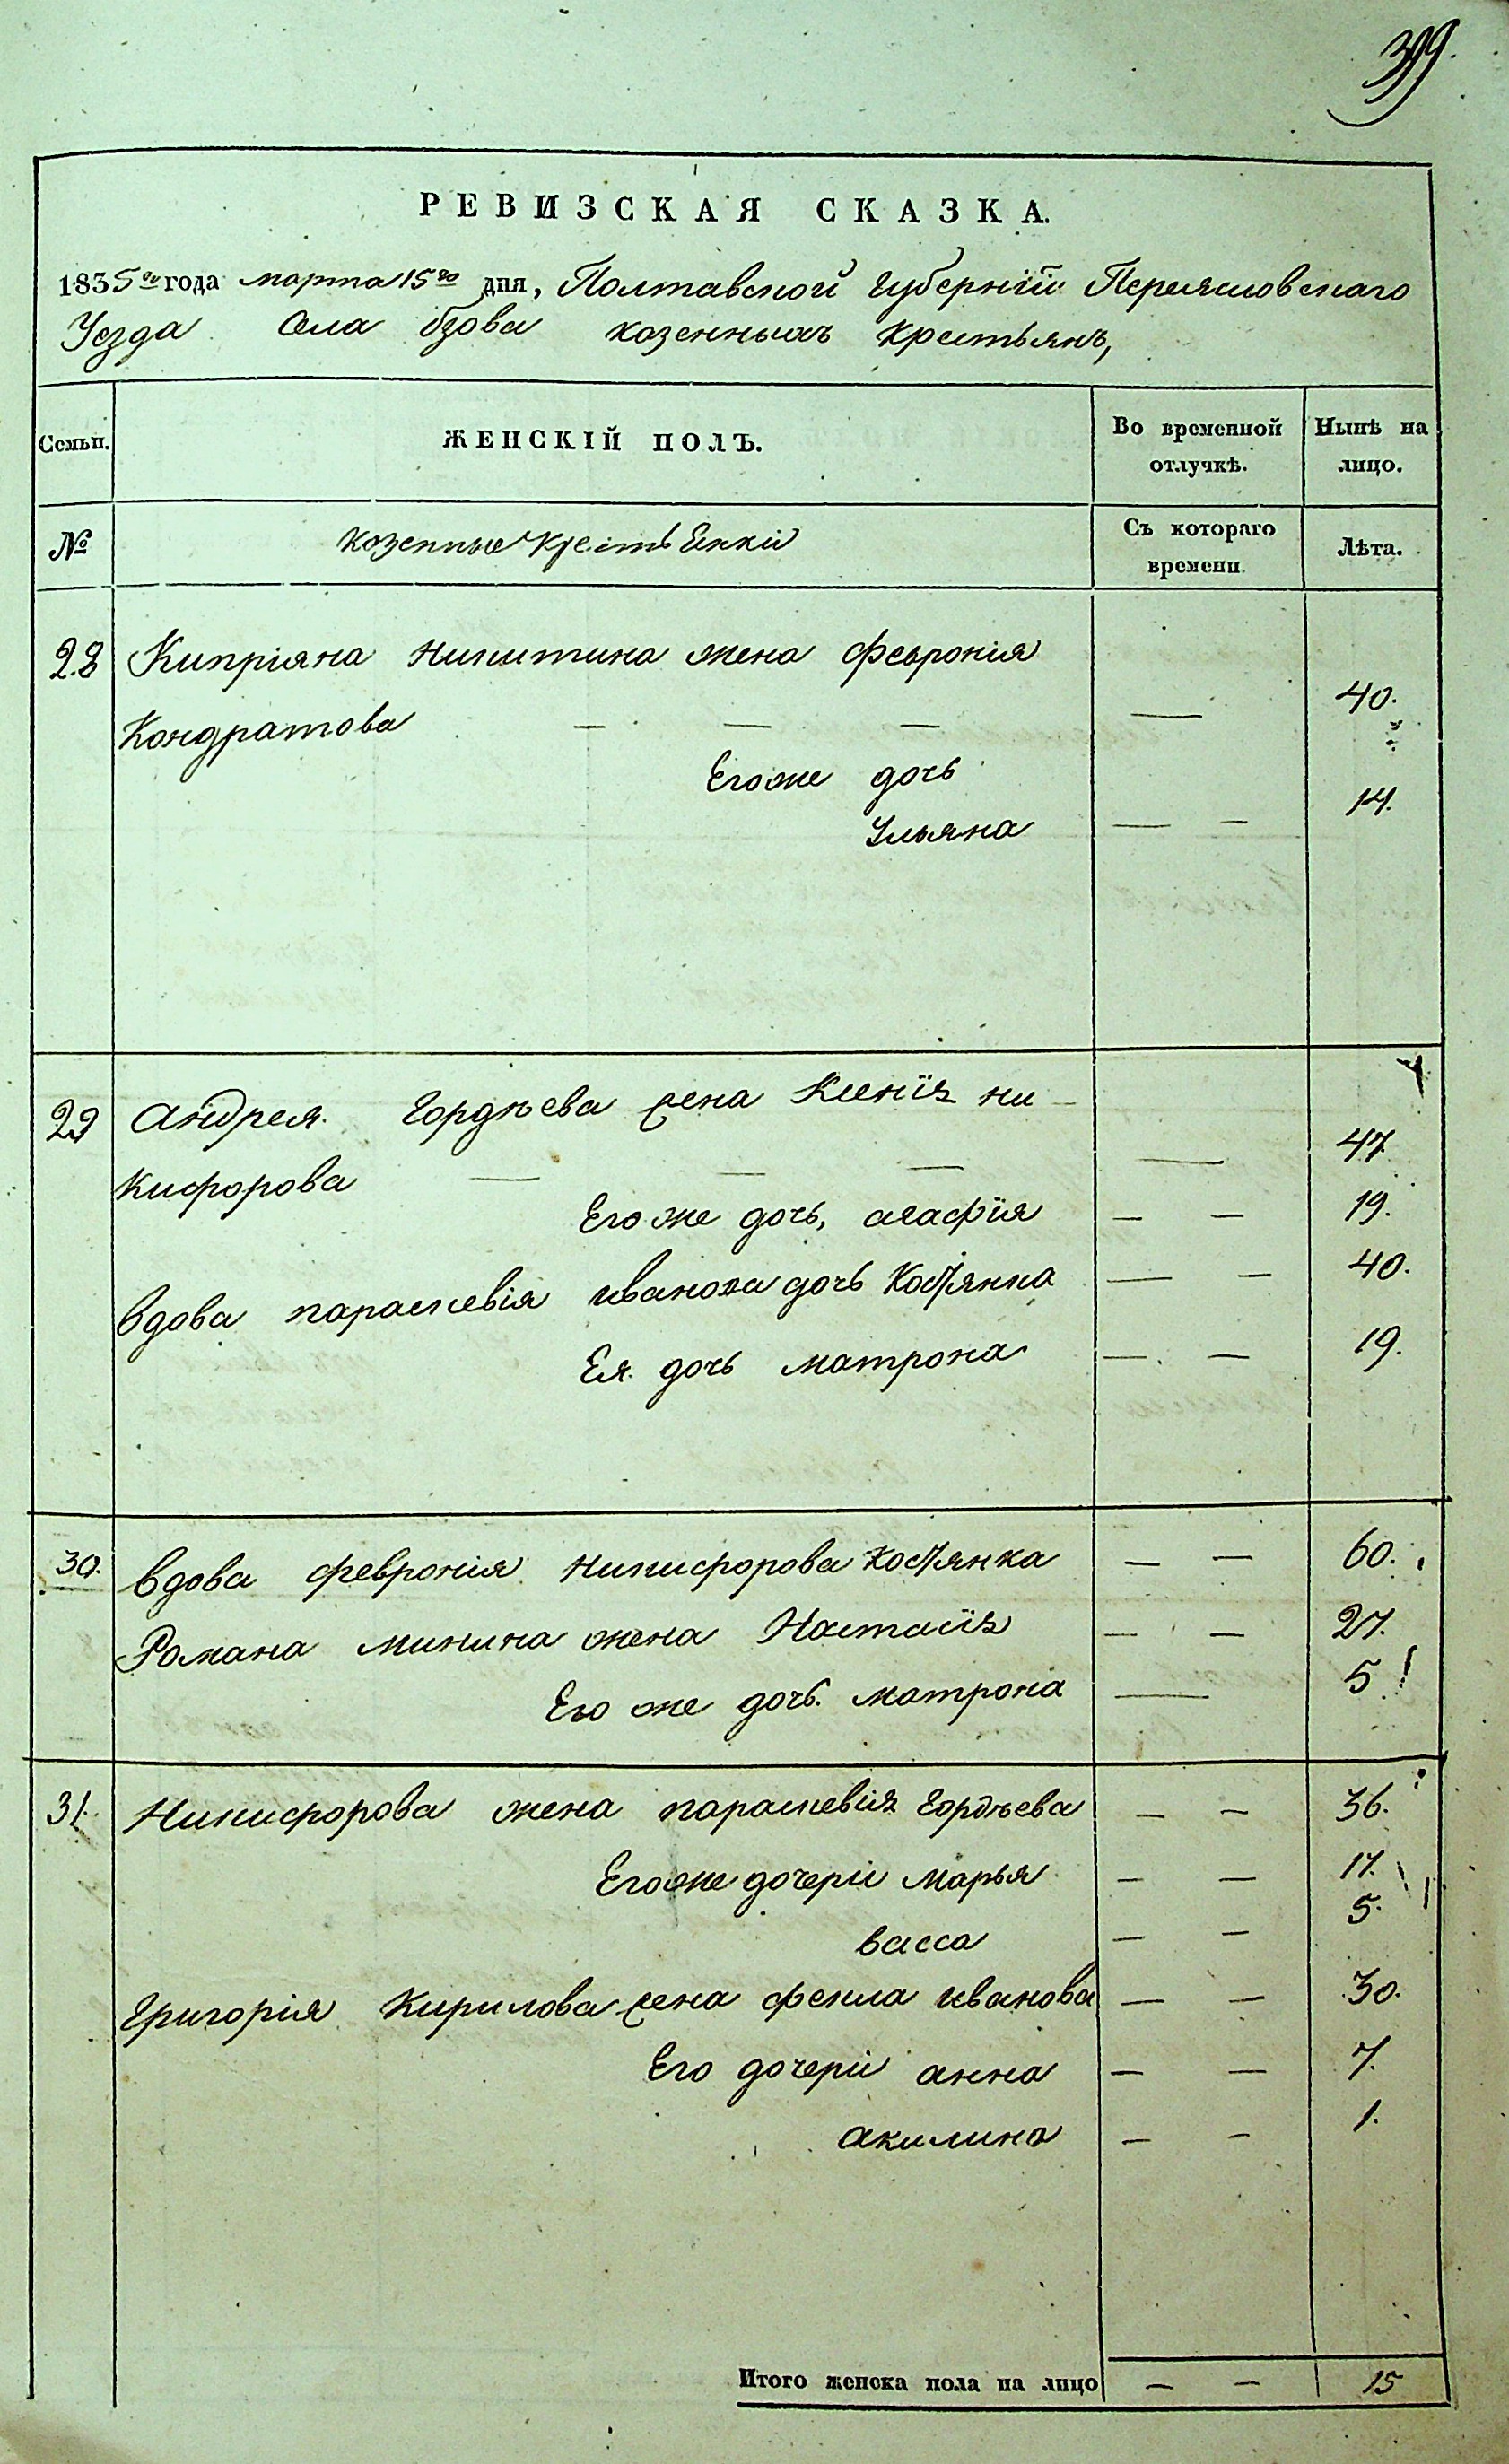 399.
РЕВИЗСКАЯ СКАЗКА.
1835го года марта 15го дня, Полтавской губернїи Переясловскаго
Уезда Села бзова козенныхъ крестьянъ,
Семьи. ЖЕНСКІЙ ПОЛЪ. Во временной отлучкѣ. Нынѣ на лицо.
№ козенные крестьЕнки Съ котораго времени Лѣта.
28 Кипріяна Никитина жена феѵронія
Кондратова — — — — 40.
Егоже дочь
Ульяна — — 14.
29 андрея Гордѣева жена Ксенія ни-
кифорова — — — — 47
Его же дочь, агафїя — — 19.
вдова параскевія иванова дочь — — 40.
Ея дочь матрона — — 19.
30. вдова феврония Никифорова — — 60.
Романа минина жена Настасія — — 27.
Его же дочь матрона — 5
31. Никифорова жена параскевія гордѣева — — 36.
Егоже дочери марья — — 17.
васса — — 5.
григорія Кирилова жена фекла иванова — — 30.
Его дочери анна — — 7.
акилина — — 1.
Итого женска пола на лицо — — 15